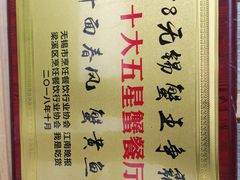 8无锡蟹王争
十大五星蟹餐厅
面春风 蟹黄鱼
无锡市烹饪餐饮行业协会 江南晚报
梁溪区烹饪餐饮行业协会 我是吃货
二〇一八年十月